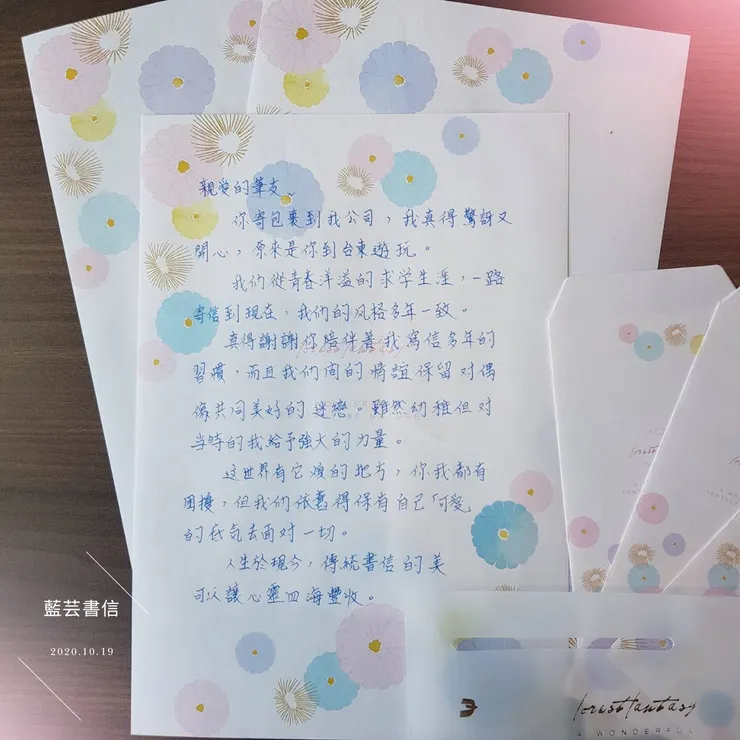 親愛的筆友~
你寄包裹到我公司，我真得驚訝又
開心，原來是你到台東遊玩。
我們從青春洋溢的求学生涯，一路
寄信到現在，我們的风格多年一致。
真得謝謝你陪伴著我寫信多年的
習慣，而且我們间的情誼保留对偶
像共同美好的迷戀。雖然幼稚但对
当時的我給予強大的力量。
这世界有它煩的地方，你我都有
困擾，但我們依舊得保有自己「可愛
的民氣去面对一切。
人生於現今，傳統書信的美
可以讓心靈四海豐收。
藍芸書信
2020.10.19
forest fantasy
A WONDERFUL